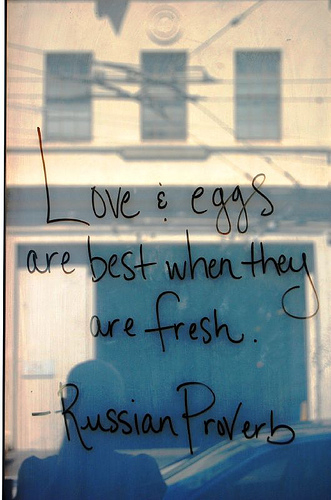 Love & eggs
are best when they
are fresh.
- Russian Proverb